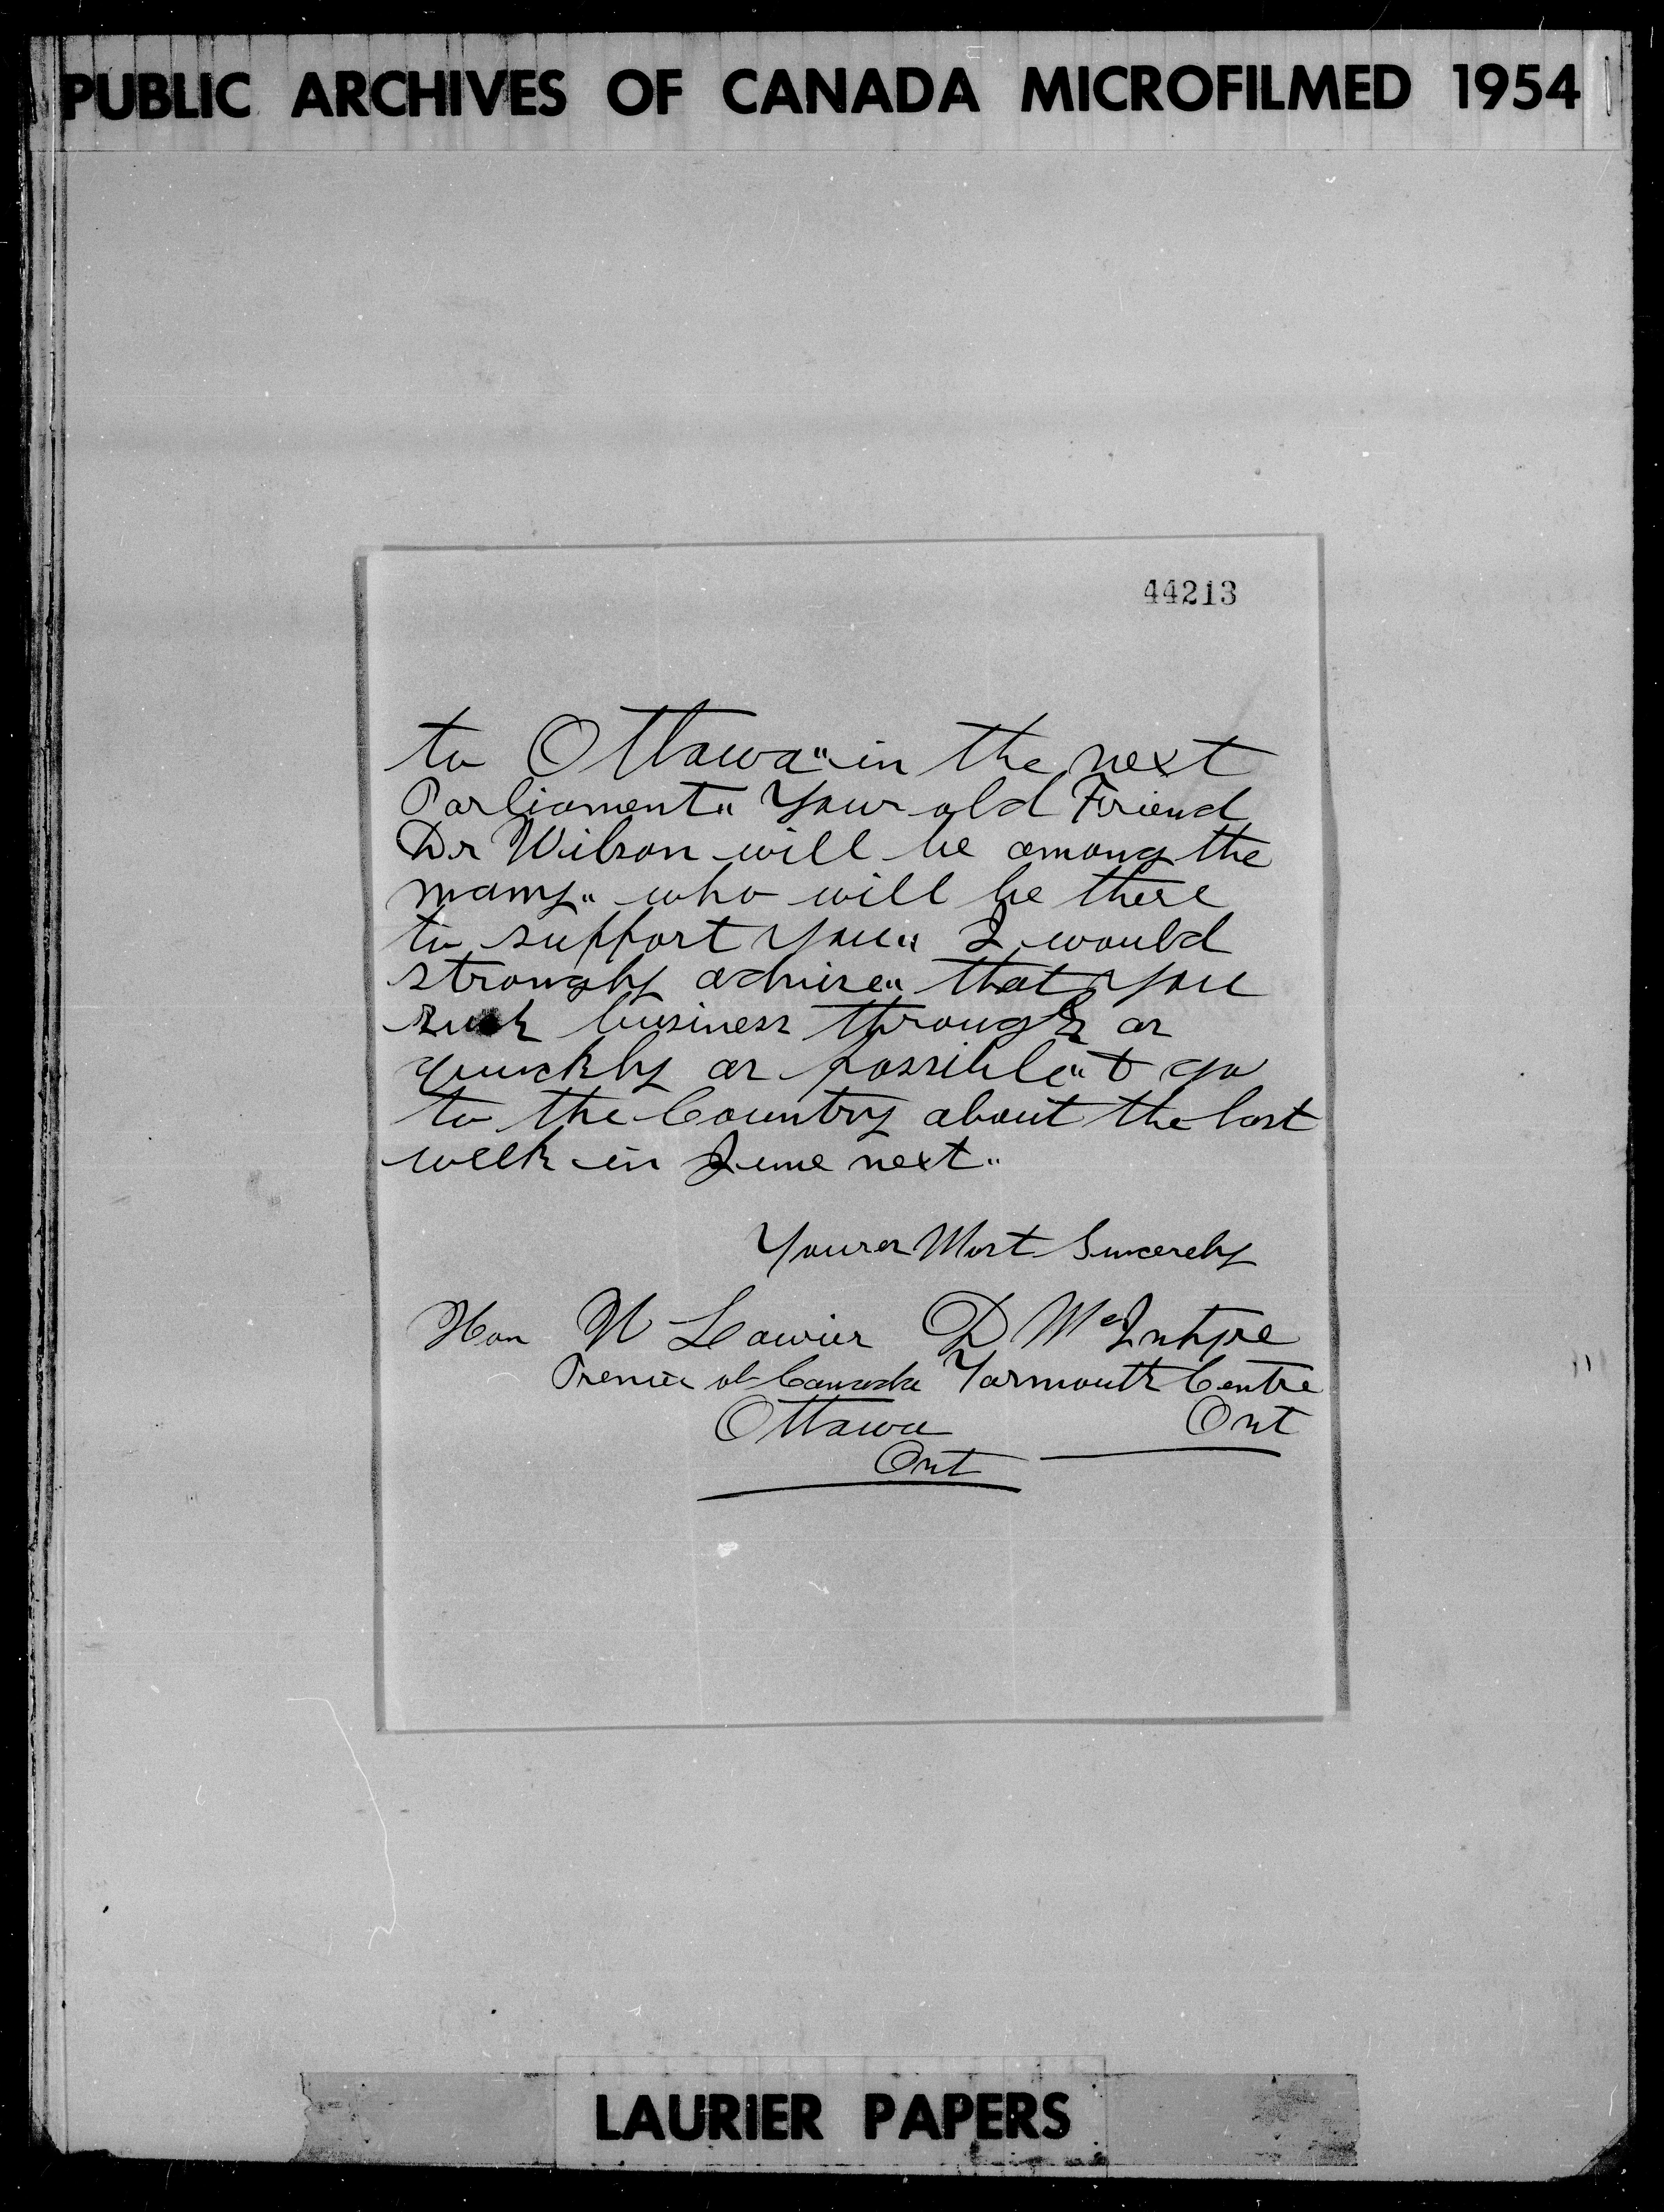 PUBLIC ARCHIVES OF CANADA MICROFILMED 1954
44213
to Ottawa" in the next
Parliament" Your old Friend
Dr Wilson will be among the
many" who will be there
to support you" I would
strongly advise" that you
rush business through as
quickly as possible" & go
to the Country about the last
week in June next"
Yours Most Sincerely
Hon W Laurier D McIntyre
Premier of Canada Yarmouth Centre
Ottawa Ont
Ont
LAURIER PAPERS